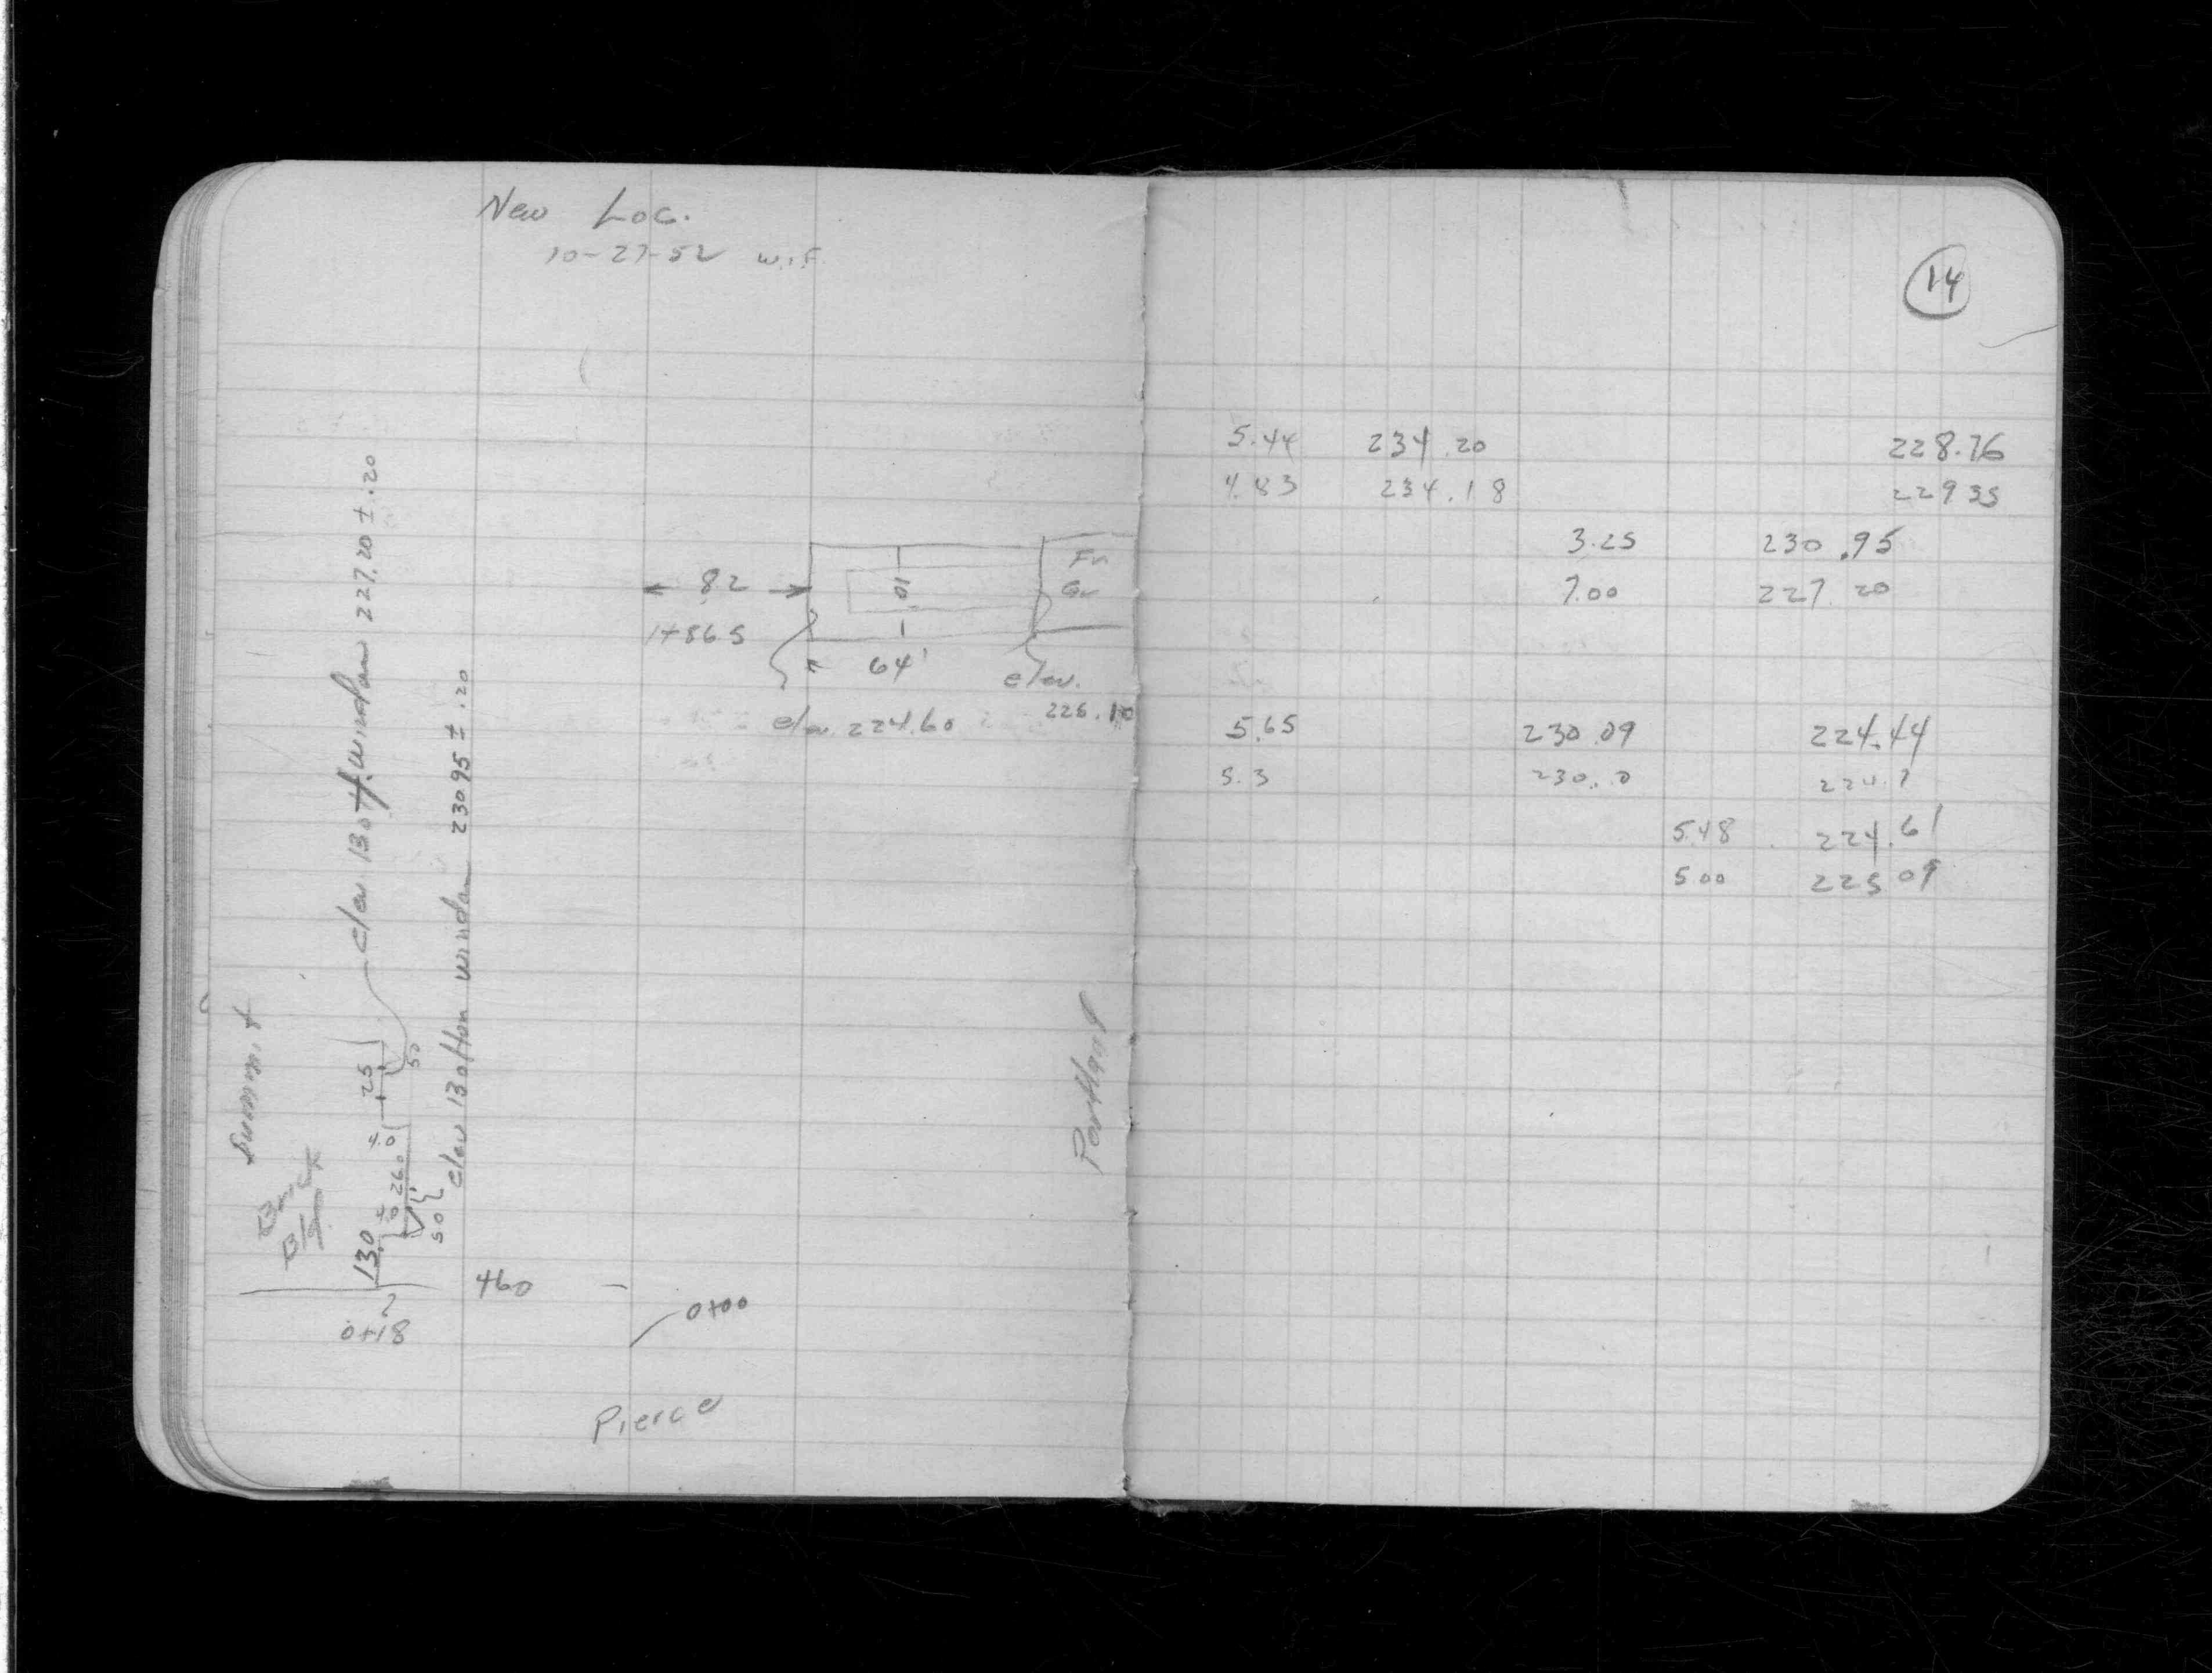 New Loc.
10-27-52 W.F.
82
1+86.5
64'
10
elev. 224.60
elev.
225.10
Elev Bottom window 227.20 ± .20
Elev Bottom window 230.95 ± .20
Summit
Brick
Bldg
13.0
4.0
26.0
4.0
25
5.0
5.0
0+18
460
0+00
Pierce
Portland
14
5.44 234.20 228.76
4.83 234.18 229 35
3.25 230.95
7.00 227.20
5.65 230.09 224.44
5.3 230.0 224.7
5.48 224.61
5.00 225 09